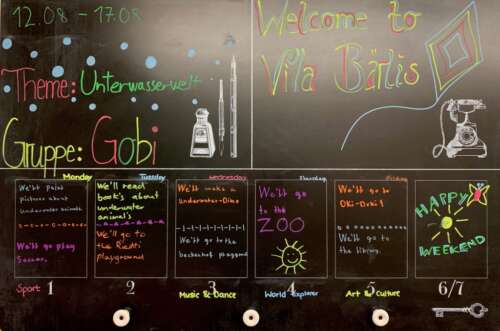 12.08 - 17.08
Welcome to
Villa Bärlis
Theme: Unterwasserwelt
Gruppe: Gobi
Monday
We'll Paint
pictures about
underwater animals
We'll go play
Soccer.
Sport
1
Tuesday
We'll read
book's about
underwater
animal's
We'll go to
the
playground
2
Wednesday
We'll make a
Underwater-Dino
We'll go to the
playground
3
Music & Dance
Thursday
We'll go
to the
ZOO
4
World explorer
Friday
We'll go to
Oki-Doki!
We'll go to
the
5
Art & Culture
HAPPY
WEEKEND
6/7